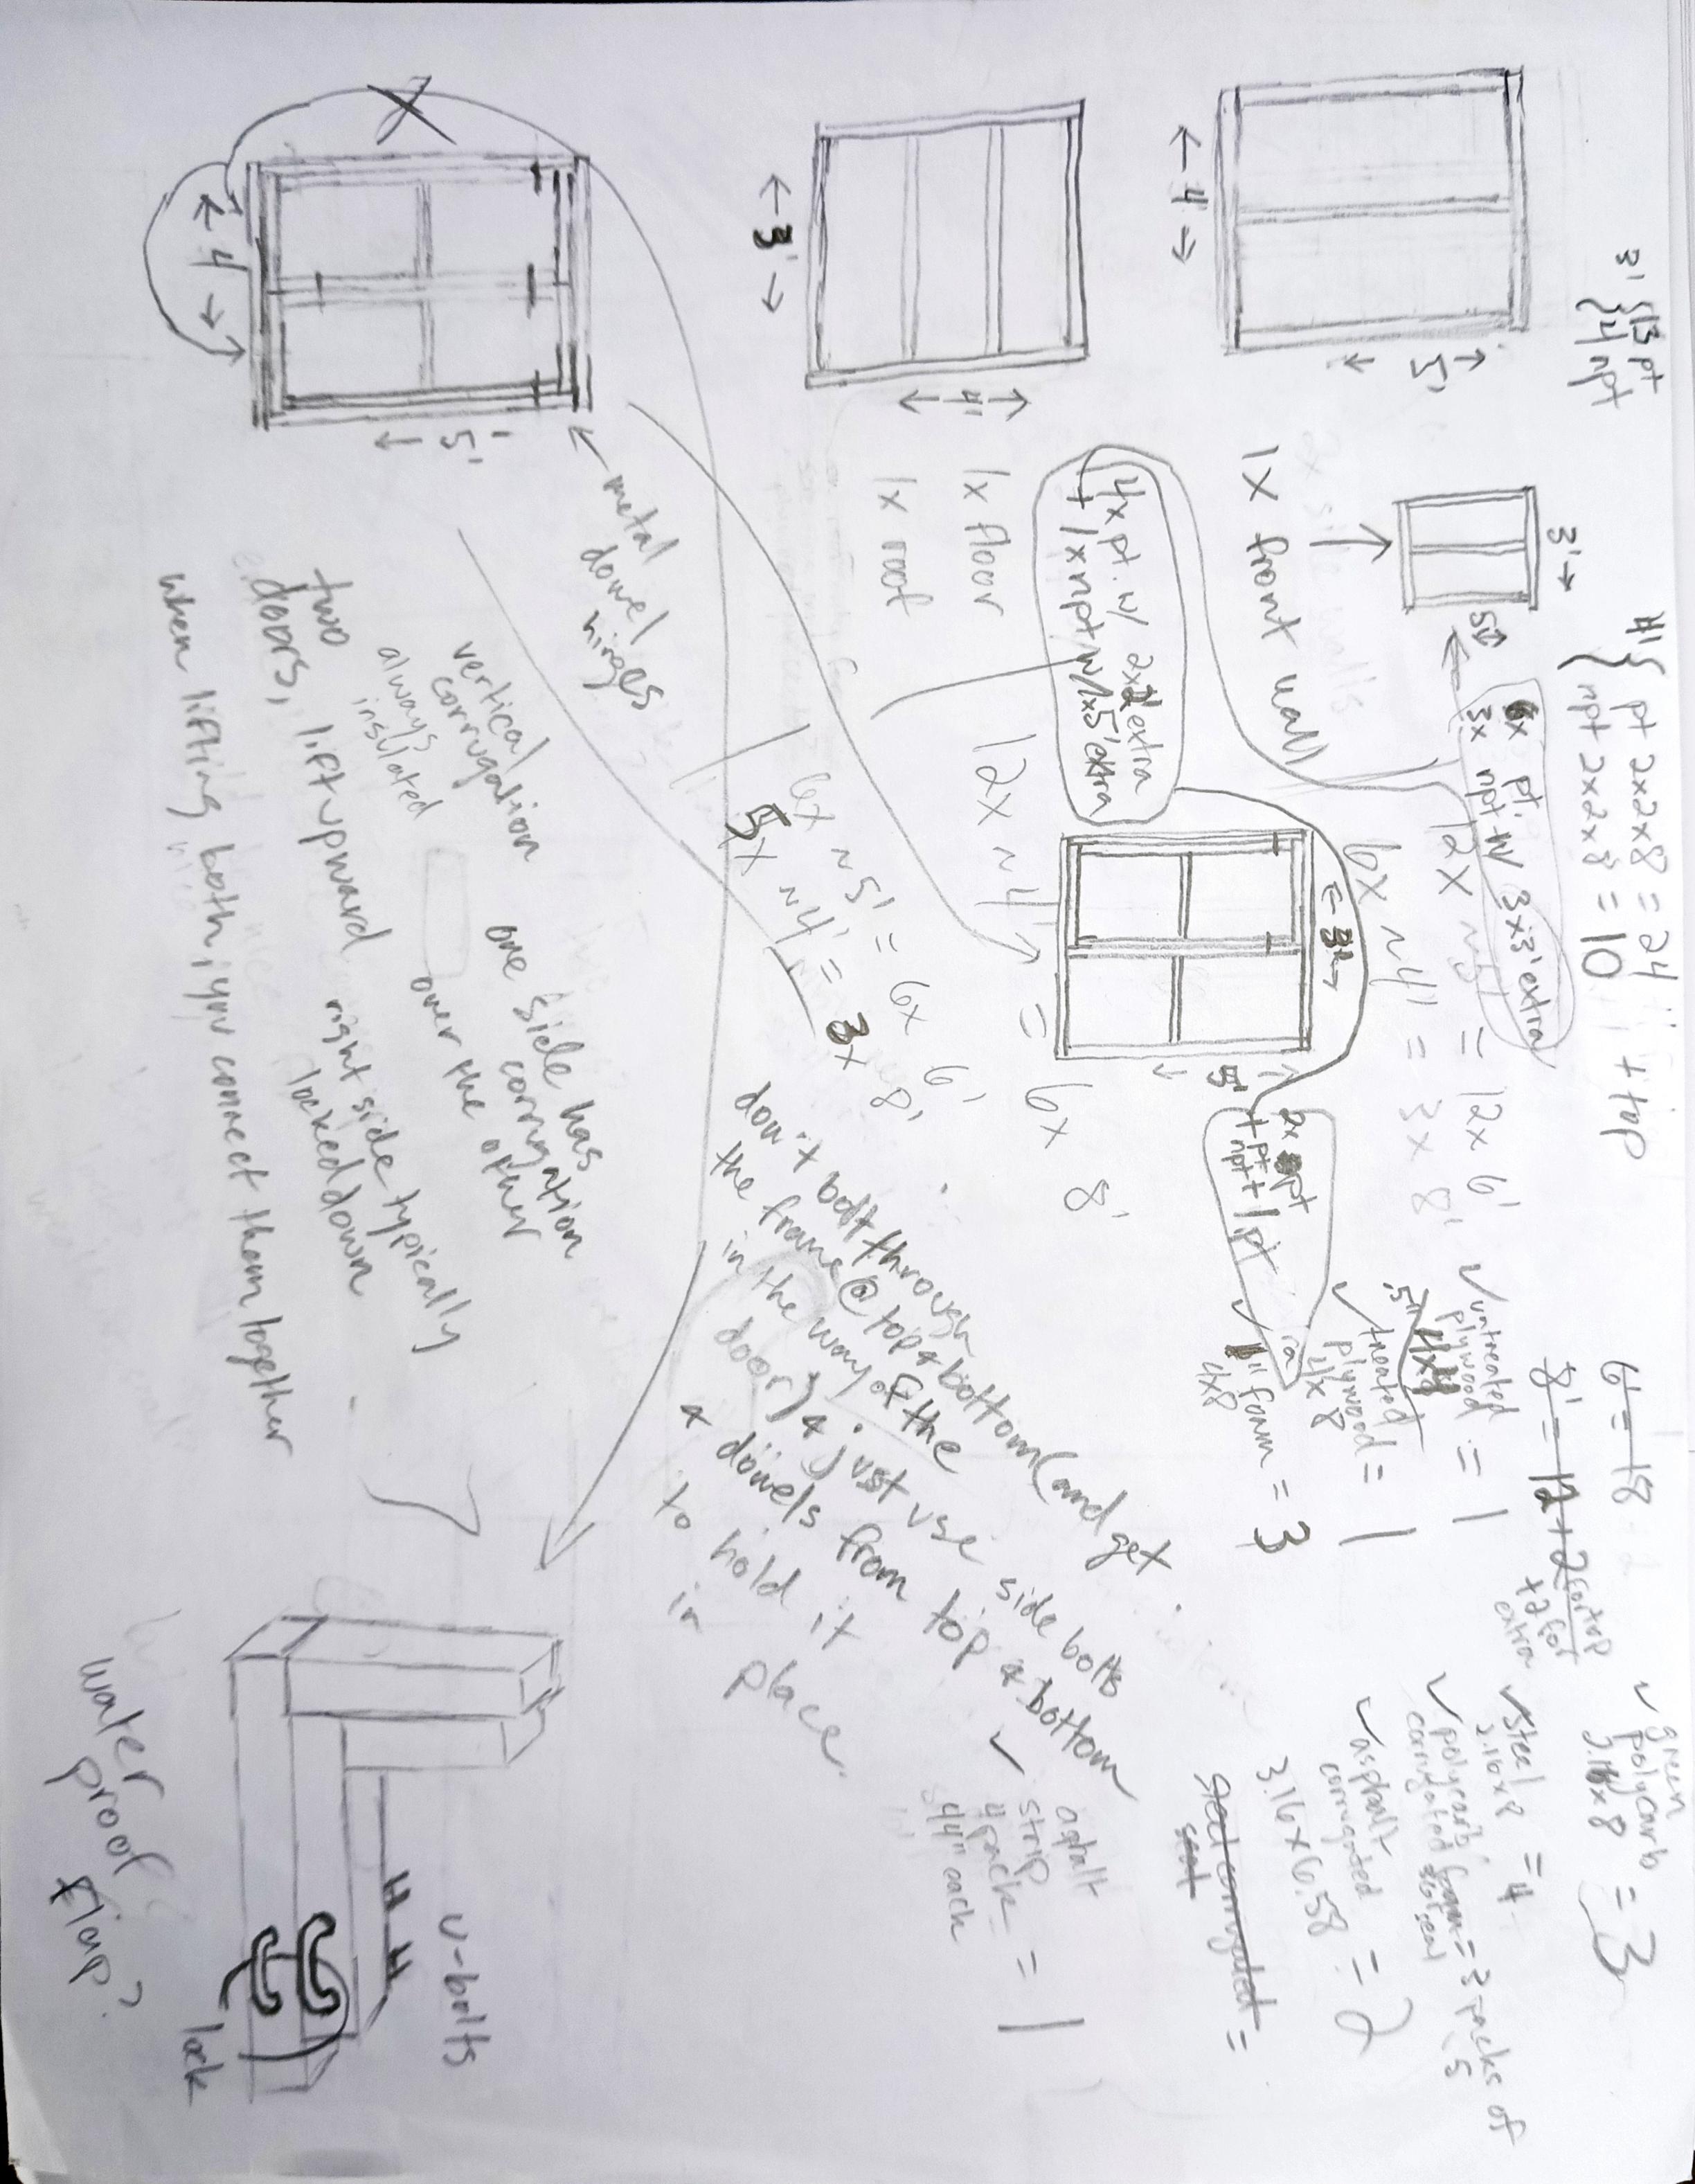 3' { 13 pt
4 npt
4' { pt 2x2x8 = 24
npt 2x2x8 = 10
+ top
6' = 18
8' = 12 + 2 for top
+ 2 for
extra
✓ green
polycarb
2.16x8 = 3
✓ steel
2.16x8 = 4
✓ polycarb
corrugated foam = 3 packs of
5
✓ asphalt
corrugated
3.16 x 6.58 = 2
steel corrugated =
✓ asphalt
strip
4 pack = 1
44" each
3' →
5'
6x pt.
3x npt w/ 3x3' extra
← 4' →
← 5' →
1x front wall
12x ~5' = 12x 6'
6x ~4' = 3x 8'
✓ untreated
plywood = 1
.5" 4x8
✓ treated
plywood = 1
4x8
✓ 1" foam = 3
4x8
← 3' →
← 4' →
4x pt. w/ 2x2' extra
+ 1x npt w/ 1x5' extra
1x floor
1x roof
12x ~4' = 6x 8'
← 3' →
← 5' →
+ 1 pt
6x ~5' = 6x 6'
5x ~4' = 3x 8'
← 4' →
5'
← metal
dowel
hinges
vertical
corrugation
always
insulated
one side has
corrugation
over the other
two
doors, lift upward
right side typically
locked down
when lifting both, you connect them together
don't bolt through
the frame @ top & bottom (and get
in the way of the
door) & just use side bolts
& dowels from top & bottom
to hold it
in place.
u-bolts
lock
water
proof
flap?